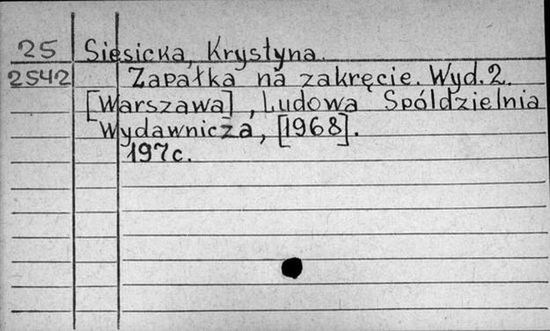 25 Siesicka, Krystyna.
2542 Zapałka na zakręcie. Wyd. 2.
[Warszawa], Ludowa Spóldzielnia
Wydawnicza, [1968].
197c.